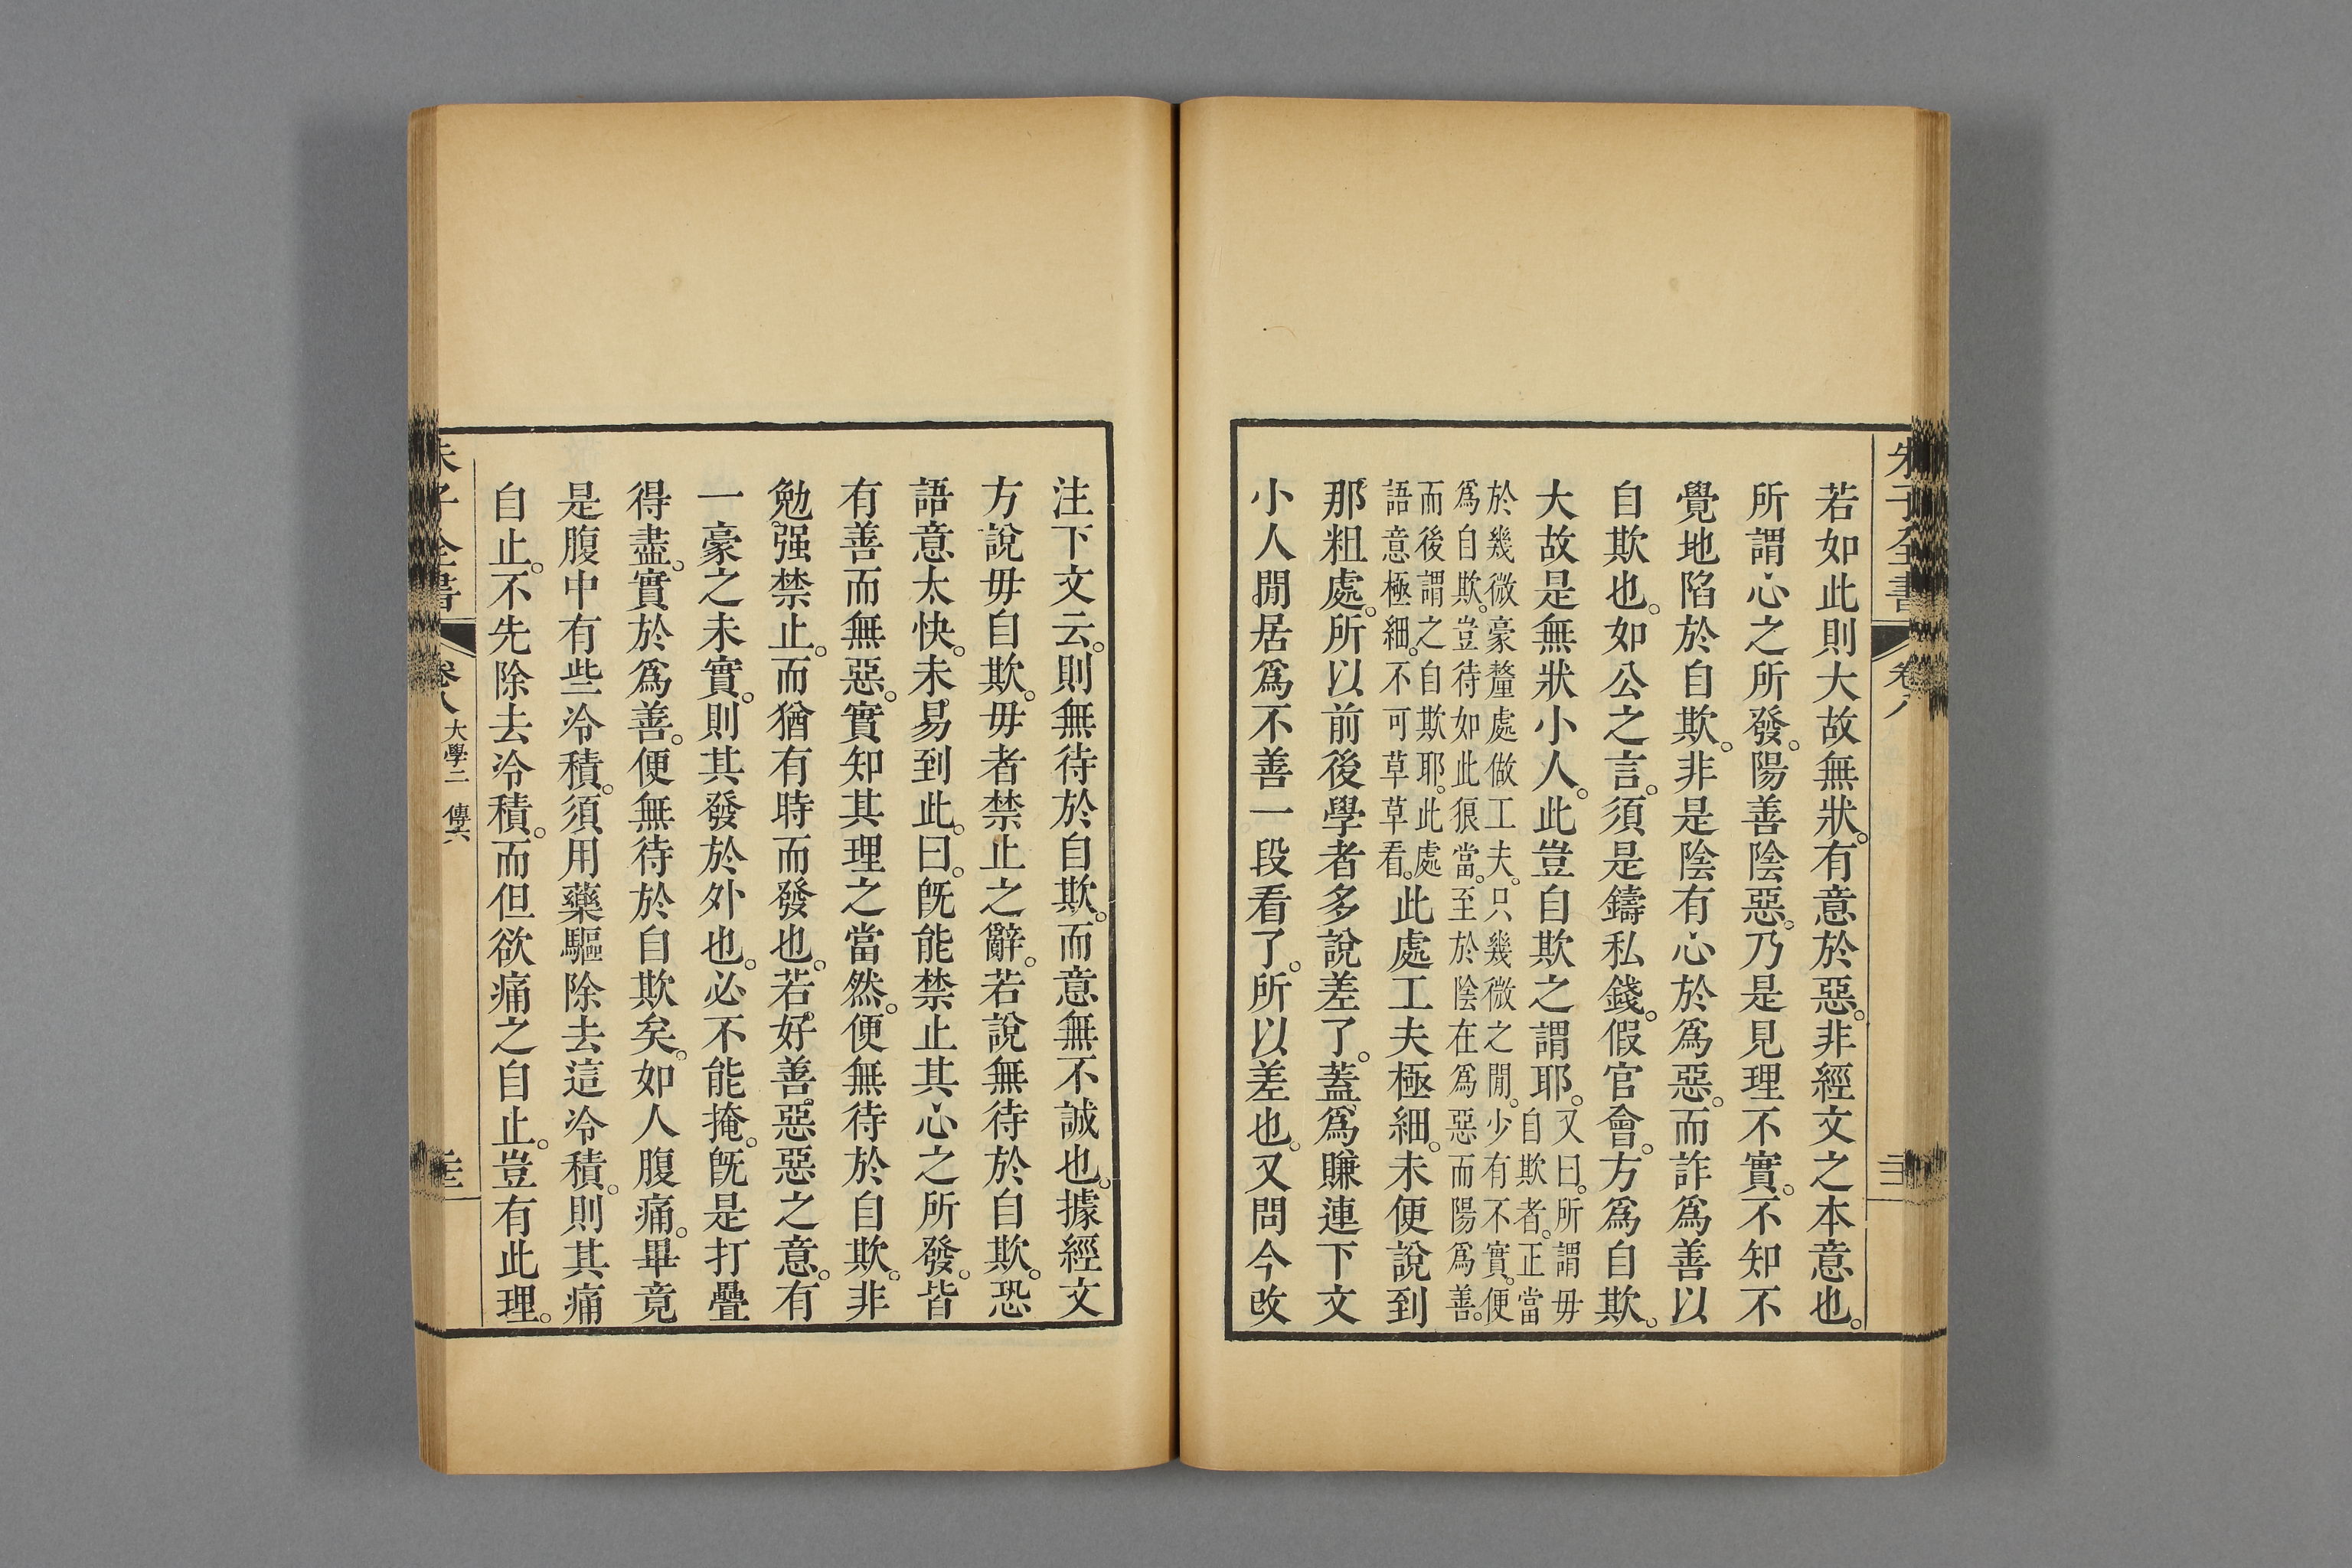 朱子全書 卷八
若如此則大故無狀。有意於惡。非經文之本意也。
所謂心之所發。陽善陰惡。乃是見理不實。不知不
覺地陷於自欺。非是陰有心於爲惡。而詐爲善以
自欺也。如公之言。須是鑄私錢。假官會。方爲自欺。
大故是無狀小人。此豈自欺之謂耶。又曰。所謂毋
自欺者。正當
於幾微豪釐處做工夫。只幾微之閒。少有不實。便
爲自欺。豈待如此狼當。至於陰在爲惡而陽爲善。
而後謂之自欺耶。此處
語意極細。不可草草看。此處工夫極細。未便說到
那粗處。所以前後學者多說差了。蓋爲賺連下文
小人閒居爲不善一段看了。所以差也。又問今改
注下文云。則無待於自欺。而意無不誠也。據經文
方說毋自欺。毋者禁止之辭。若說無待於自欺。恐
語意太快。未易到此。曰。旣能禁止其心之所發。皆
有善而無惡。實知其理之當然。便無待於自欺。非
勉强禁止。而猶有時而發也。若好善惡惡之意。有
一豪之未實。則其發於外也。必不能掩。旣是打疊
得盡。實於爲善。便無待於自欺矣。如人腹痛。畢竟
是腹中有些冷積。須用藥驅除去這冷積。則其痛
自止。不先除去冷積。而但欲痛之自止。豈有此理。
朱子全書 卷八 大學二 傳六